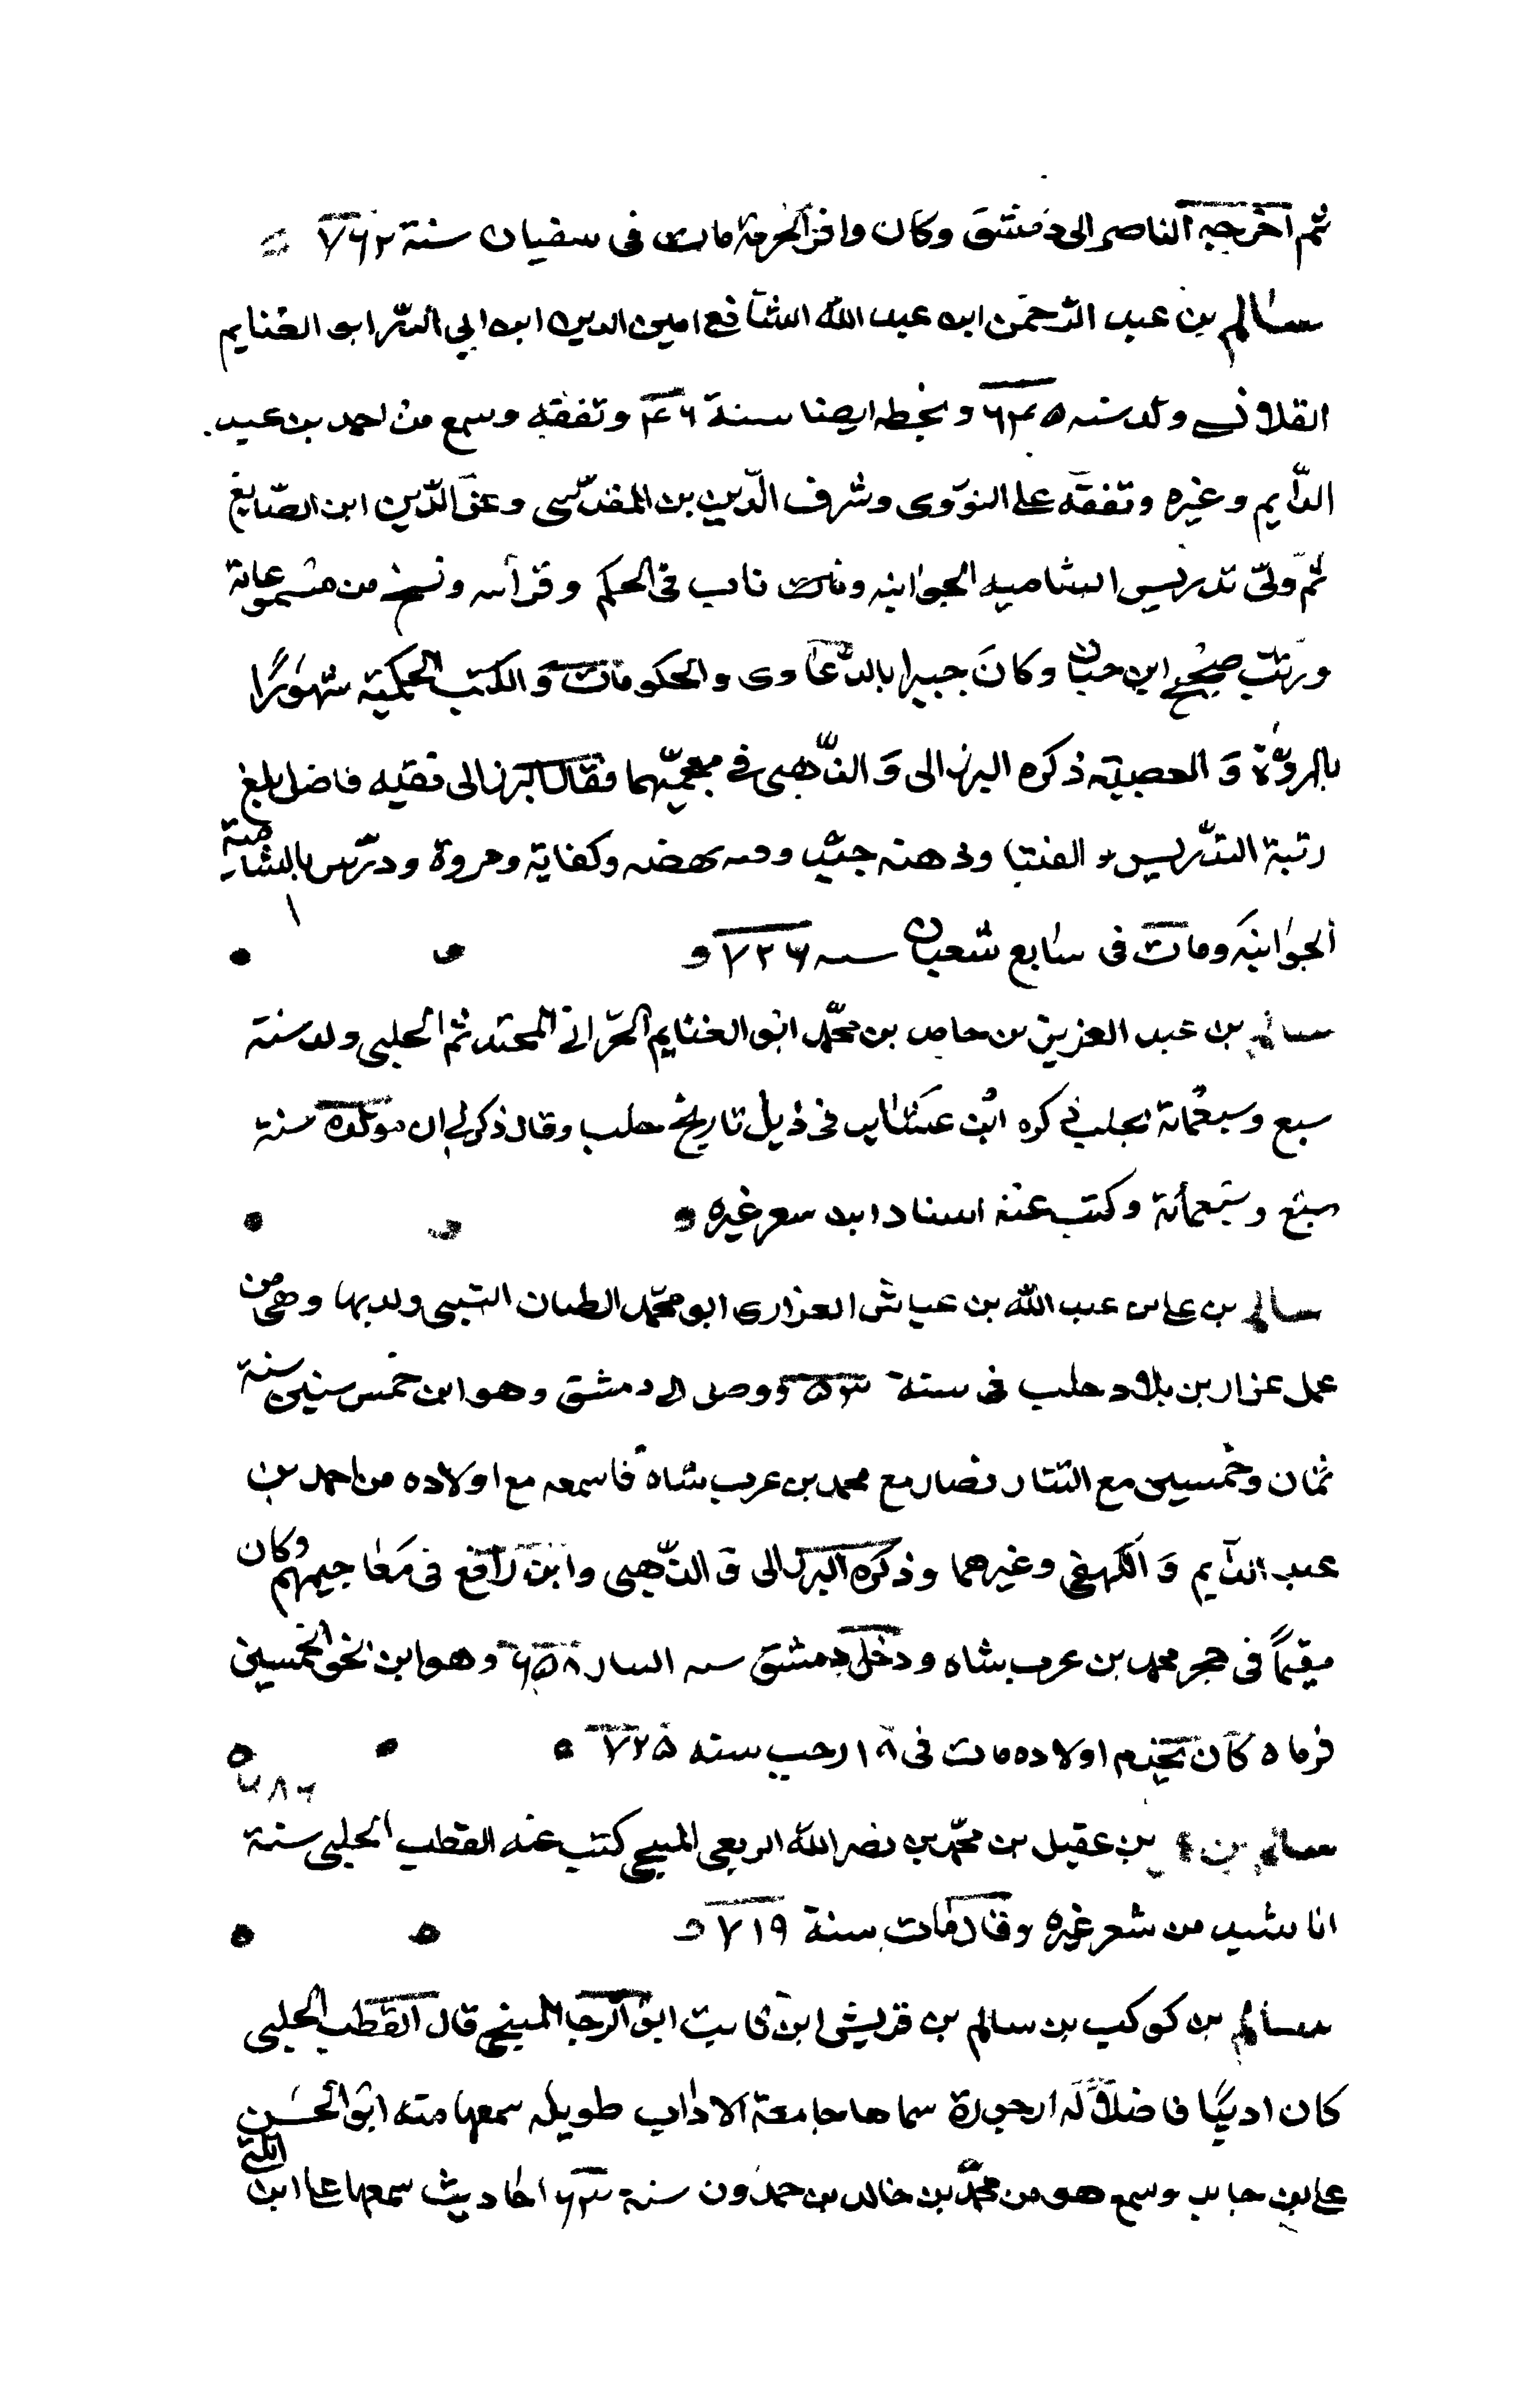 ثم اخرجه الناصر الى دمشق وكان وافر الحرمة مات فى سفيان سنة ٧٦٢
سالم بن عبد الرحمن ابن عبد الله الشافع امين الدين ابن ابي الدر ابو الغنايم
القلانى ولد سنه ٦٤٥ وبخطه ايضا سنة ٤٦ وتفقه وسمع من احمد بن عبد
الدايم وغيره وتفقه على النووى وشرف الدين بن المقدسى وعز الدين ابن الصايغ
ثم ولى تدريس الشاميه الجوانيه وناب فى الحكم وقرأ ونسخ من مسموعاته
ورتب صحيح ابن حبان وكان جبيرا بالدعاوى والحكومات والكتب الحكمية شهورا
بالمروة والعصبية ذكره البرزالى والذهبى فى معجميهما فقال البرزالى فقيه فاضل بلغ
رتبة التدريس والفتيا وذهنه جيد وفيه نهضه وكفاية ومروة ودرس بالشامية
الجوانية ومات فى سابع شعبان سنه ٧٢٦
سالم بن عبد العزيز بن حامد بن محمد ابو الغنايم الحرانى المحتد ثم الحلبى ولد سنة
سبع وسبعمائة بحلب ذكره ابن عشاير فى ذيل تاريخ حلب وقال ذكر لى ان مولده سنة
سبع وسبعمائة وكتب عنه اسنادا بد سعر غيره
سالم بن على بن عبد الله بن عياش العزارى ابو محمد الطحان التبى ولد بها وهى من
عمل عزاز بن بلاد حلب فى سنة ٥٣ ووصل الى دمشق وهو ابن خمس سنين سنة
ثمان وخمسين مع التتار فصار مع محمد بن عرب شاه فاسمعه مع اولاده من احمد بن
عبد الدايم والكهفى وغيرهما وذكره البرزالى والذهبى وابن رافع فى معاجيمهم وكان
مقيما فى حجر محمد بن عرب شاه ودخل دمشق سنه التتار ٦٥٨ وهو ابن نحو الخمسين
فرماه كان يخدم اولاده مات فى ١٨ رجب سنه ٧٢٥
سالم بن بن عقيل بن محمد بن نصر الله الربعى المنبجى كتب عنه القطب الحلبى سنة
اناشيد من شعر غيره وقال مات سنة ٧١٩
سالم بن كوكب بن سالم بن قريش ابن ثابت ابو الرجا المنبجى قال القطب الحلبى
كان اديبا فاضلا له ارجوزة سماها جامعة الاداب طويله سمعها منه ابو الحسن
على بن جابر وسمع هو من محمد بن خالد بن حمدون سنة ٦٣ احاديث سمعها على ابن اللتى